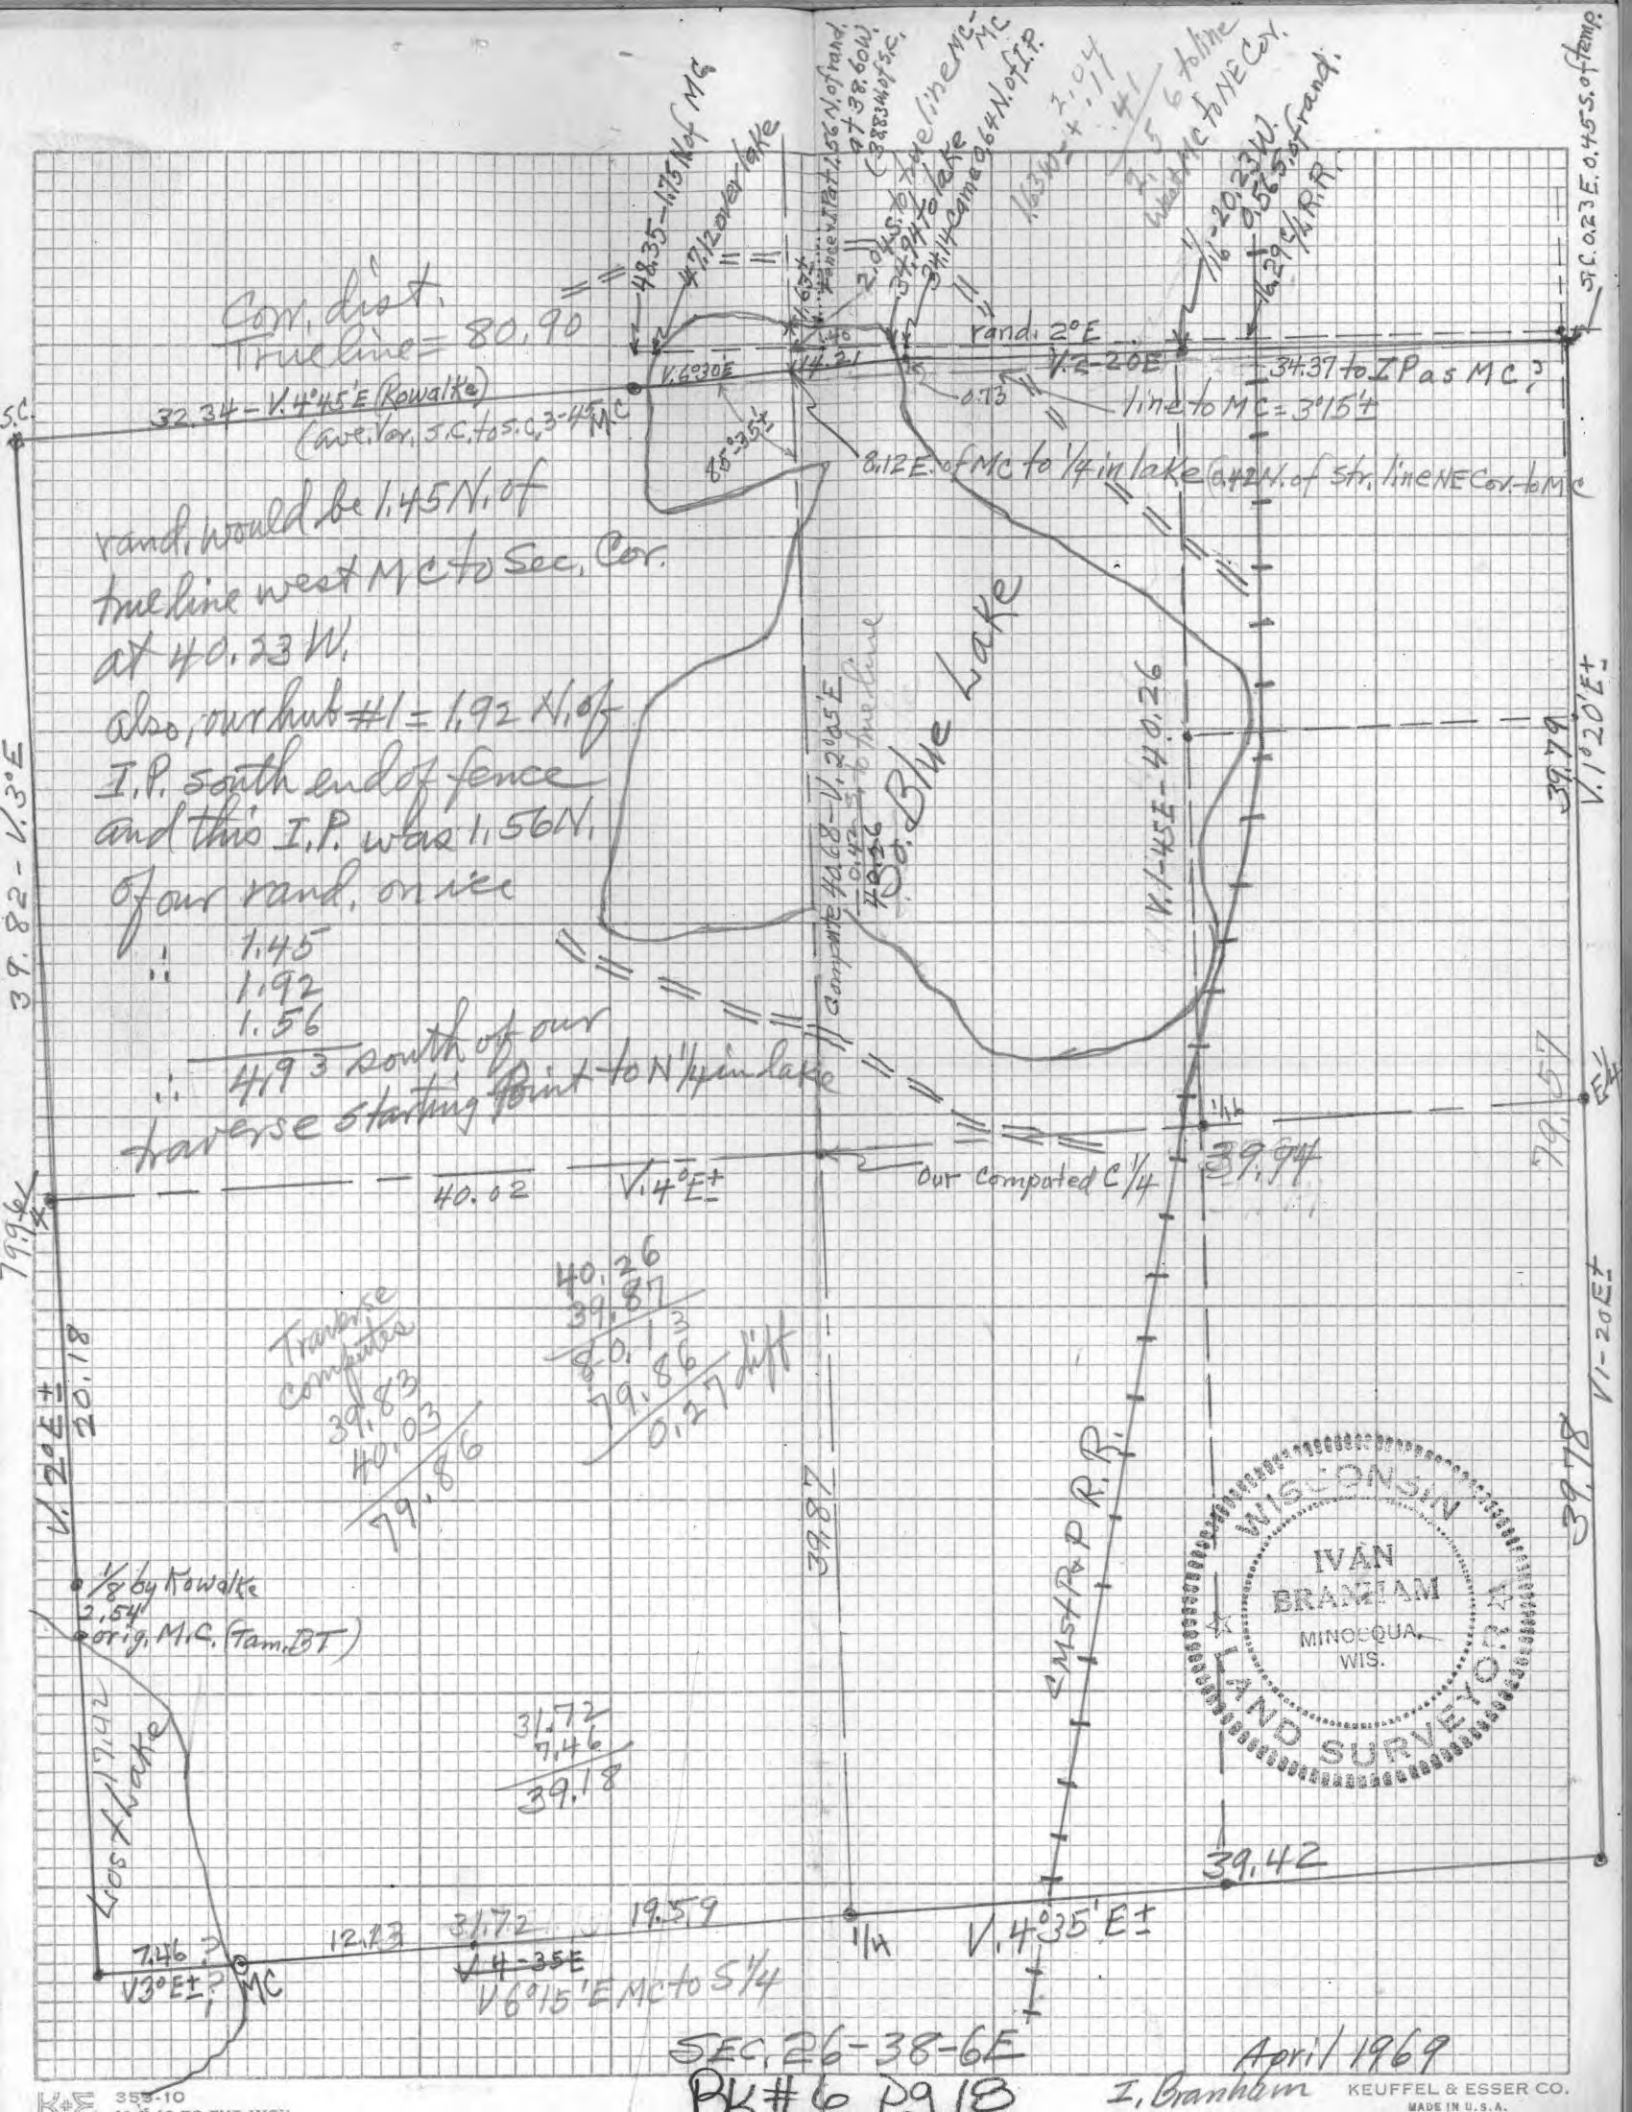 48.35-1.75 N. of MC
47.12 over lake
1.63±
fence & I.P. at 1.56 N. of rand.
at 38.60 W.
(38.83 W. of S.C.
2.04 S. to true line MC-MC
34.94 to lake
34.14 came 0.64 N. of I.P.
2.04
.11
.41
2.56 to line
west MC to NE Cor.
1/16-20.23 W.
0.56 S. of rand.
16.29 C/L R.R.
S.C. 0.23 E. 0.45 S. of temp.
Corr. dist.
True line = 80.90
rand. 2°E
V.6°30'E
14.21
V.2-20E
34.37 to I P as M C ?
S.C.
32.34 - V.4°45'E (Kowalke)
(ave. Var. S.C. to S.C. 3-45)
M.C
0.73
line to MC = 3°15'±
85°-35'±
8.12 E. of MC to 1/4 in lake (0.42 N. of str. line NE Cor. to MC
rand. would be 1.45 N. of
true line west MC to Sec. Cor.
at 40.23 W.
also, our hub #1 = 1.92 N. of
I.P. south end of fence
and this I.P. was 1.56 N.
of our rand. on ice
∴ 1.45
1.92
1.56
∴ 4.93 south of our
traverse starting Point to N 1/4 in lake
39.82 - V.3°E
So. Blue Lake
Compute 40.68-V.2°05'E
0.42 S. to true line
40.26
V.1-45E-40.26
39.79
V.1°20'E±
79.57
E 1/4
1/16
39.94
Our Computed C 1/4
40.02
V.4°E±
79.96
Traverse
computes
39.83
40.03
79.86
40.26
39.87
80.13
79.86
0.27 diff
V.2°E±
20.18
39.87
CMStP&P R.R.
V1-20E±
39.78
WISCONSIN
IVAN
BRANHAM
MINOCQUA,
WIS.
LAND SURVEYOR
1/8 by Kowalke
2.54
orig. M.C. (Tam. BT)
17.42
Lost Lake
31.72
7.46
39.18
39.42
7.46 ?
V3°E± ?
MC
12.13
31.72
19.59
V 4-35E
V6°15'E MC to S 1/4
1/4
V.4°35'E±
SEC. 26-38-6E
April 1969
BK #6 Pg 18
I. Branham
K+E 353-10
KEUFFEL & ESSER CO.
MADE IN U.S.A.